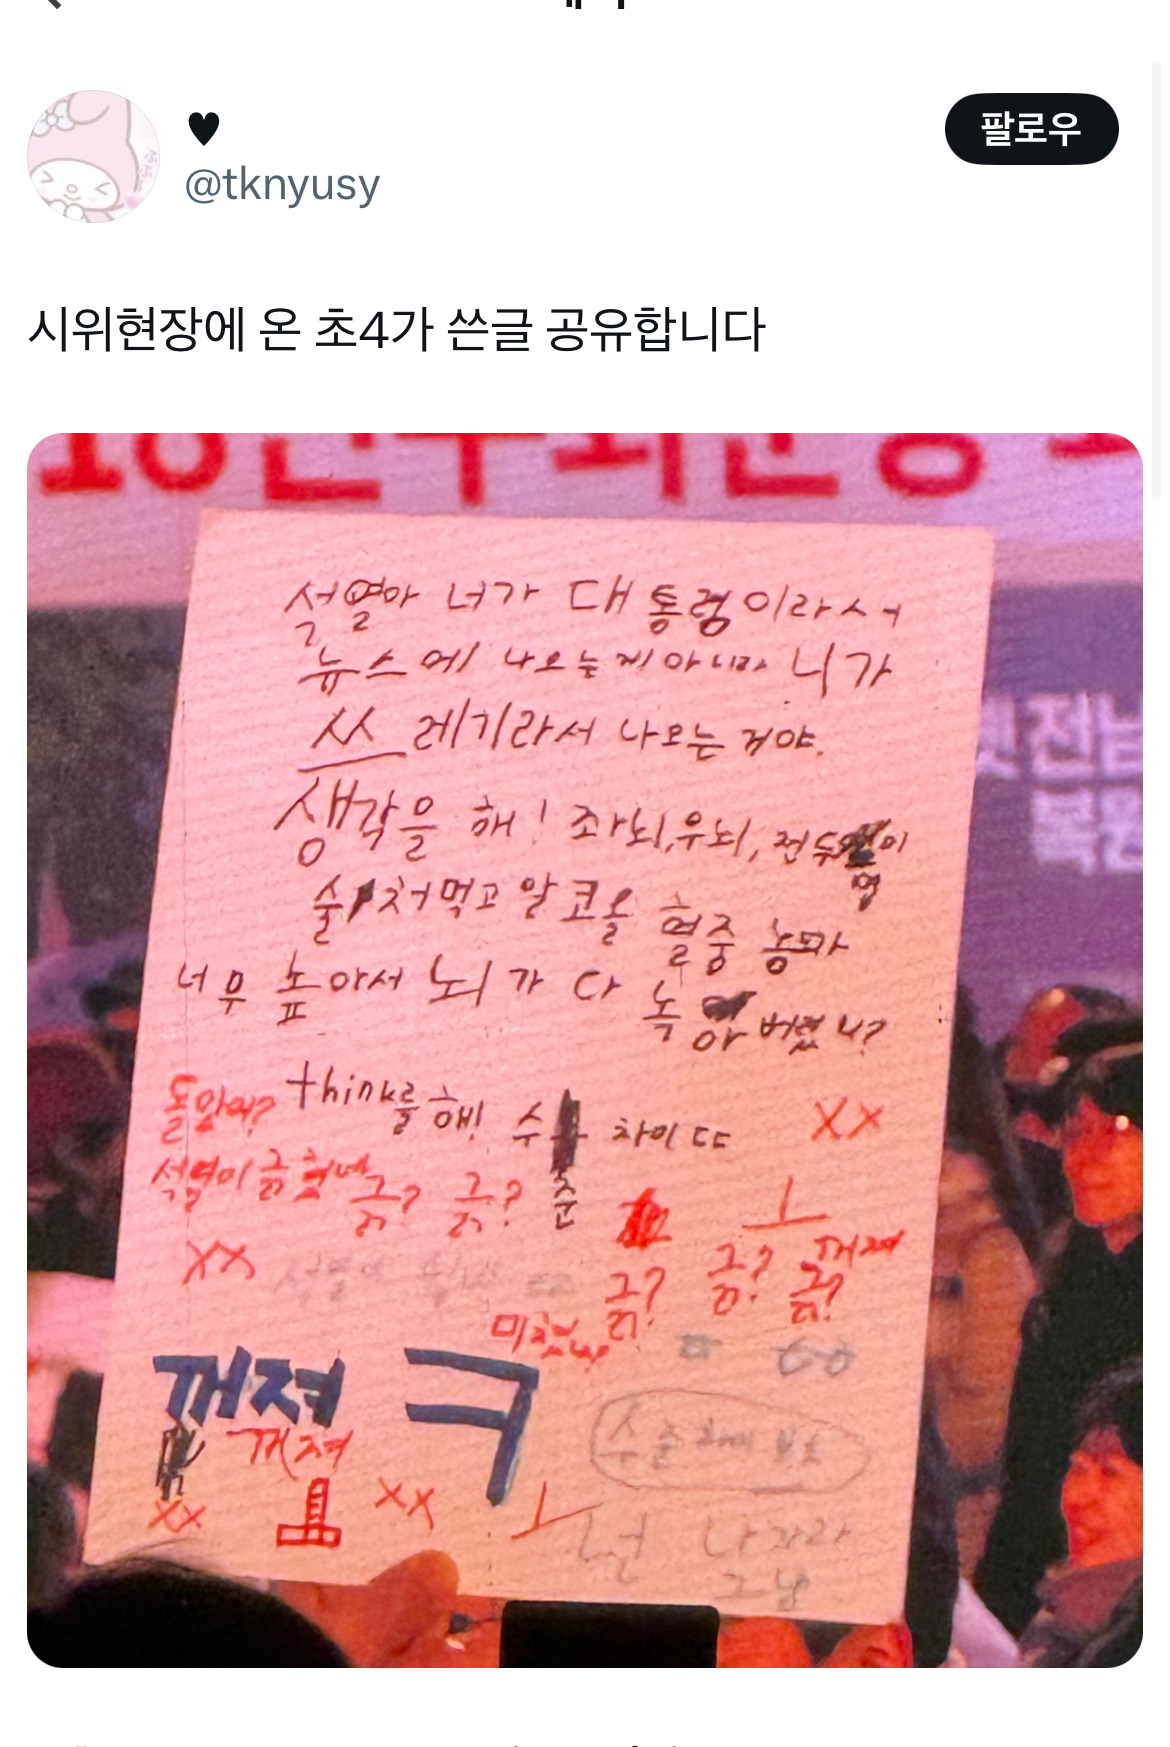 ♥
@tknyusy
팔로우
시위현장에 온 초4가 쓴글 공유합니다
석열아 너가 대통령이라서
뉴스에 나오는게 아니라 니가
쓰레기라서 나오는 거야.
생각을 해! 좌뇌,우뇌, 전두엽이
술 처먹고 알코올 혈중 농도가
너무 높아서 뇌가 다 녹아 버렸니?
think를 해! 수준 차이 ㄷㄷ
XX
석열이 긁
긁? 긁?
ㅗ
XX
긁? 긁? 꺼져
긁?
꺼져 ㅋ
꺼져
XX
XX
ㅗ
넌 나자라
그냥